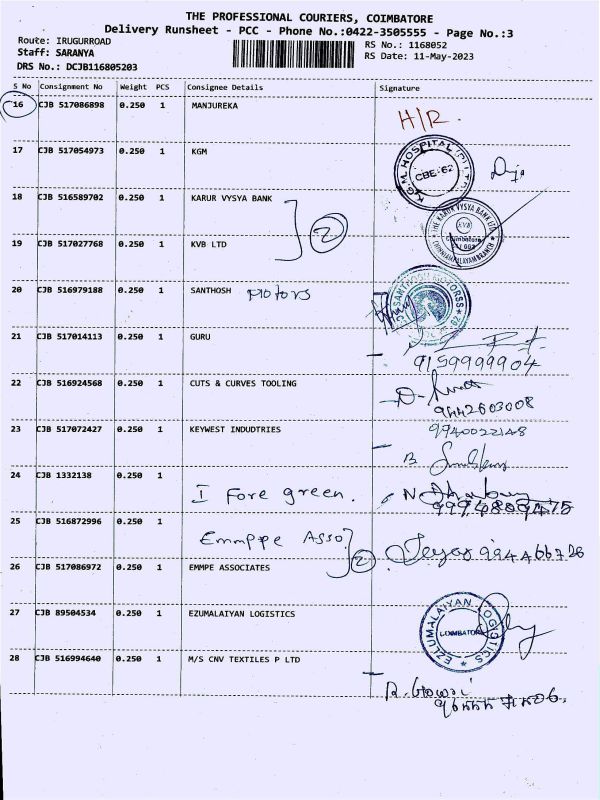 THE PROFESSIONAL COURIERS, COIMBATORE
Delivery Runsheet - PCC - Phone No.:0422-3505555 - Page No.:3
Route: IRUGURROAD
RS No.: 1168052
Staff: SARANYA
RS Date: 11-May-2023
DRS No.: DCJB116805203
S No Consignment No Weight PCS Consignee Details Signature
16 CJB 517086898 0.250 1 MANJUREKA H/R.
17 CJB 517054973 0.250 1 KGM
K.G.M. HOSPITAL (P) LTD
CBE-62
18 CJB 516589702 0.250 1 KARUR VYSYA BANK
2
THE KARUR VYSYA BANK LTD
KVB
Coimbatore
19 CJB 517027768 0.250 1 KVB LTD
20 CJB 516979188 0.250 1 SANTHOSH Motors
SANTHOSH MOTORSS
21 CJB 517014113 0.250 1 GURU
9159999904
22 CJB 516924568 0.250 1 CUTS & CURVES TOOLING
9442603008
23 CJB 517072427 0.250 1 KEYWEST INDUDTRIES
9940022148
24 CJB 1332138 0.250 1
I Fore green.
25 CJB 516872996 0.250 1
Emmppe Asso
2
26 CJB 517086972 0.250 1 EMMPE ASSOCIATES
27 CJB 89504534 0.250 1 EZUMALAIYAN LOGISTICS
EZLUMALAIYAN LOGISTICS
COIMBATORE
28 CJB 516994640 0.250 1 M/S CNV TEXTILES P LTD